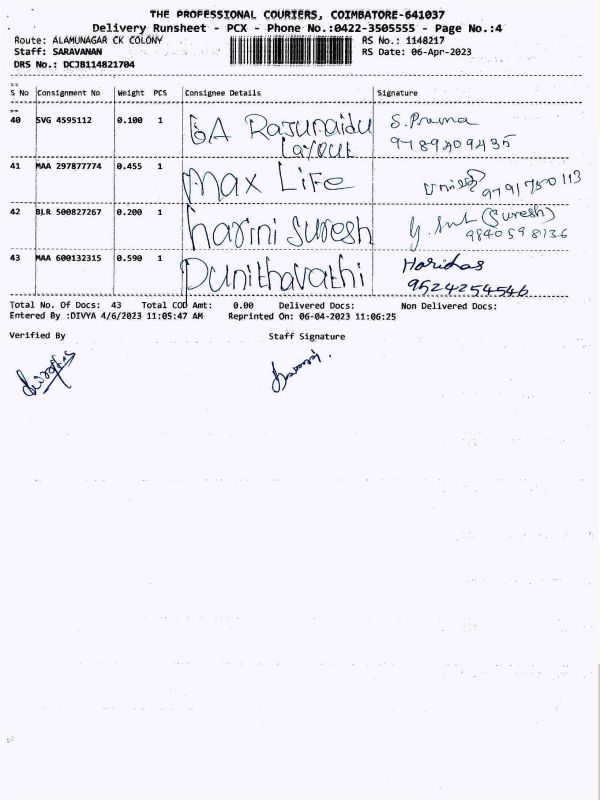 THE PROFESSIONAL COURIERS, COIMBATORE-641037
Delivery Runsheet - PCX - Phone No.:0422-3505555 - Page No.:4
Route: ALAMUNAGAR CK COLONY RS No.: 1148217
Staff: SARAVANAN RS Date: 06-Apr-2023
DRS No.: DCJB114821704
S No Consignment No Weight PCS Consignee Details Signature
40 SVG 4595112 0.100 1 6A Rajunaidu Layout S.Prema 9789409435
41 MAA 297877774 0.455 1 Max Life 9791750113
42 BLR 500827267 0.200 1 harini suresh (Suresh) 9840598136
43 MAA 600132315 0.590 1 Punithavathi Haridas 9524254546
Total No. Of Docs: 43 Total COD Amt: 0.00 Delivered Docs: Non Delivered Docs:
Entered By :DIVYA 4/6/2023 11:05:47 AM Reprinted On: 06-04-2023 11:06:25
Verified By Staff Signature